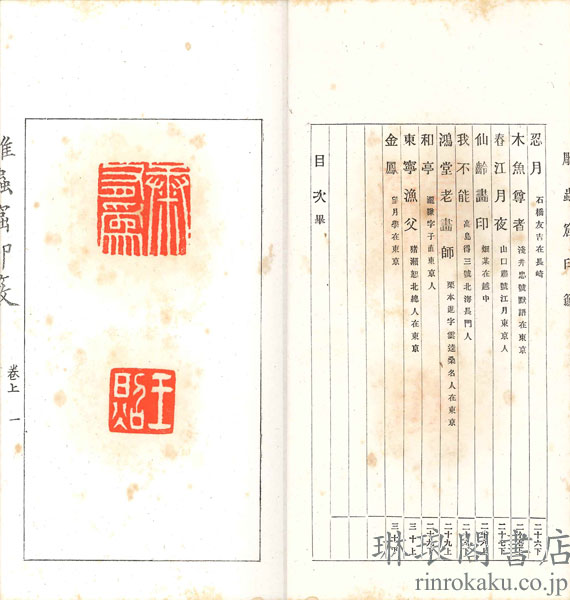 雕蟲窟印籔
忍月 石橋友吉在長崎 二十六下
木魚尊者 淺井忠號默語在東京
春江月夜 山口 號江月東京人 二十七下
仙齡畫印 畑某在越中
我不能 高島得三號北海長門人
鴻堂老畫師 栗本 字雲達桑名人在東京 二十九上
和亭 瀧 字子直東京人 二十九
東寧漁父 猪瀨恕北總人在東京 三十上
金鳳 望月學在東京 三十下
目次畢
雕蟲窟印籔
卷上 一
王
琳琅閣書店
rinrokaku.co.jp